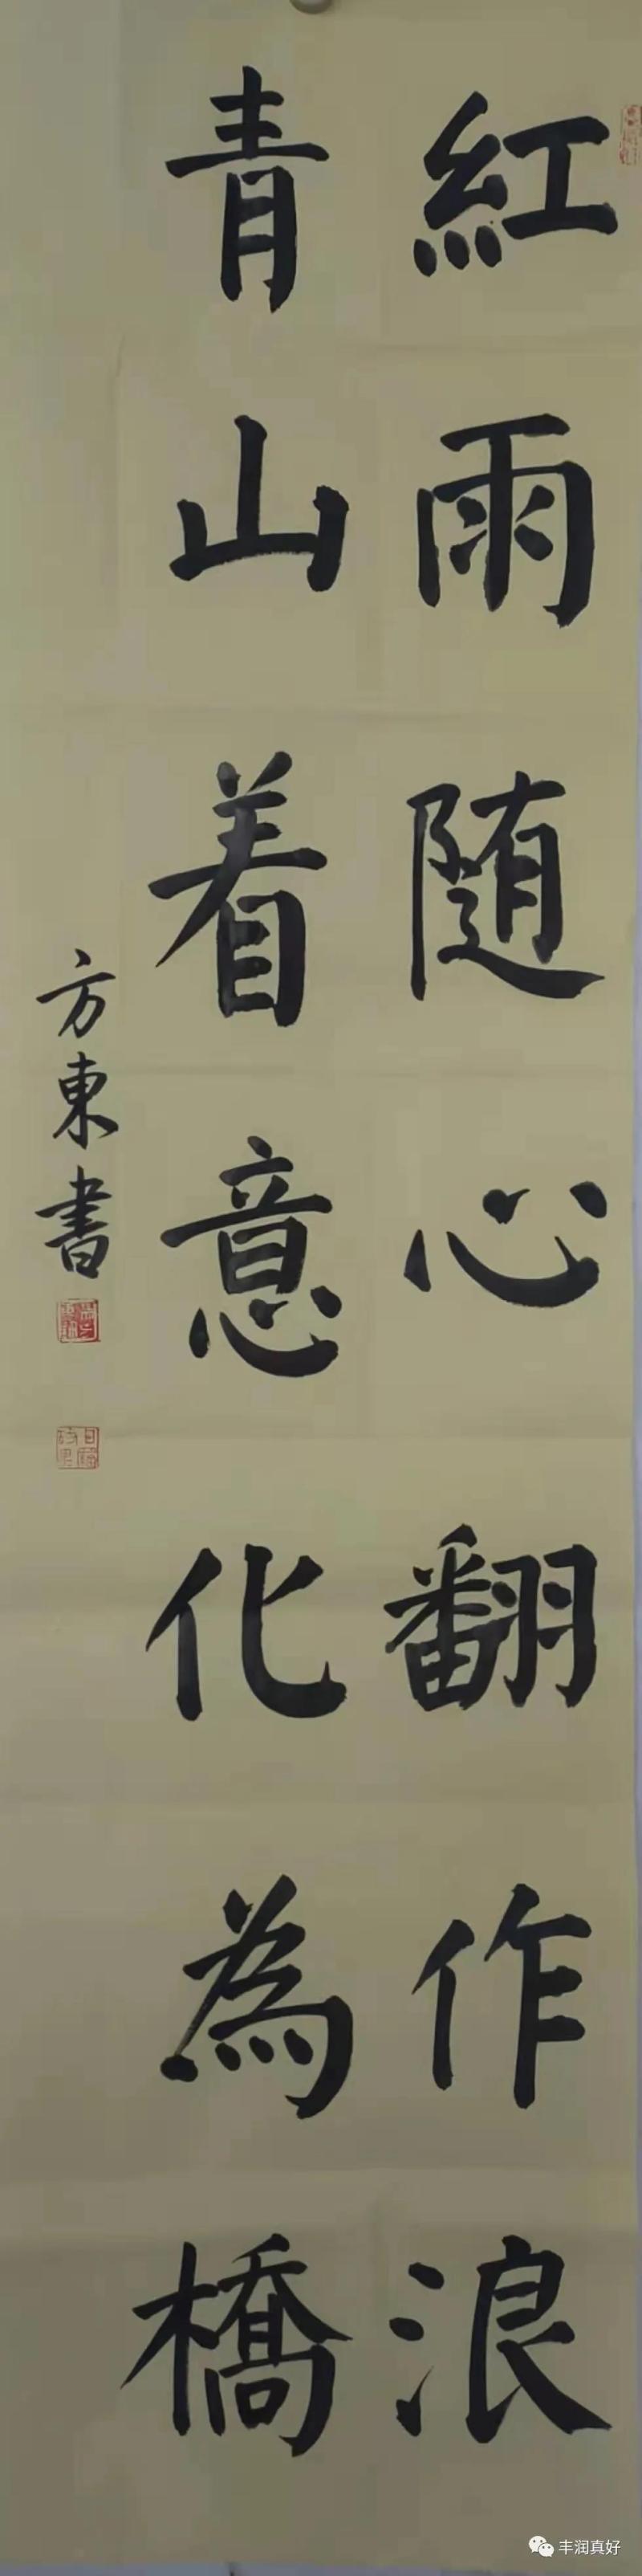 紅雨随心翻作浪
青山着意化為橋
方東書
丰润真好